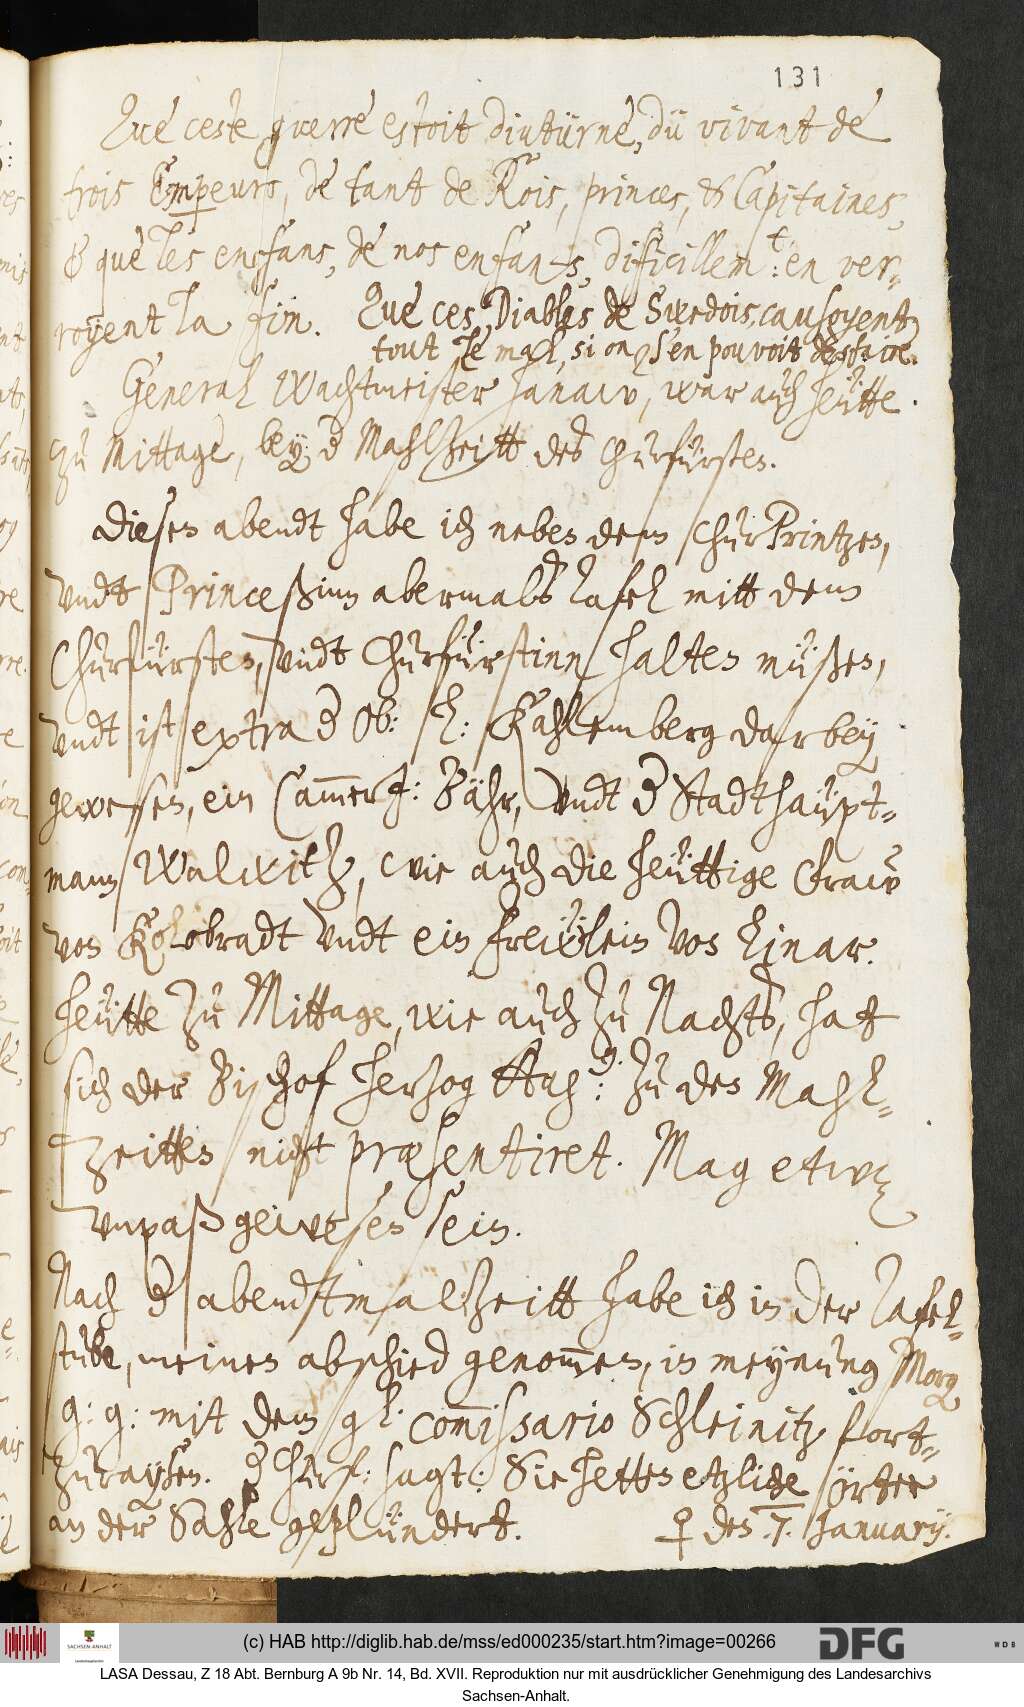 131
Que ceste guerre estoit diuturne, du vivant de
trois Empeurs, de tant de Rois, princes, & Capitaines,
& que les enffans, de nos enfants, dificillem:t en ver-
royent la fin. Que ces Diables de Swedois, causoyent
tout le mal, si on s'en pouvoit desfaire.
General Wachtmeister Hanaw, war auch heütte
zu Mittage, bey d Mahlzeitt des Churfürsten.
Diesen abendt habe ich neben dem ChurPrintzen,
vndt Princeßinn abermalß Tafel mitt dem
Churfürsten, vndt Churfürstinn halten müßen,
vndt ist extra d Ob: L: Kahlemberg darbey
gewesen, ein Cam̅erh: Bähr, vndt d Stadthaüpt-
mann Walwitz, wie auch die heüttige Fraw
von Kolobradt vndt ein freẅlein von Linar.
Heütte zu Mittage, wie auch zu Nachts, hat
sich der Bischof Herzog Aug: zu den Mahl-
zeitten nicht præsentiret. Mag etwaz
vnpaß gewesen sein.
Nach d abendtmalzeitt habe ich in der Tafel-
stube, meinen abschied genom̅en, in meynung Morg
g: g: mit dem gl. Com̅issario Schleinitz fort-
zuraysen. d Churf: sagt: Sie hetten etzliche örter
an der Sahle geplündert. ♀ den .7. January.
(c) HAB http://diglib.hab.de/mss/ed000235/start.htm?image=00266
SACHSEN-ANHALT
DFG
WDB
LASA Dessau, Z 18 Abt. Bernburg A 9b Nr. 14, Bd. XVII. Reproduktion nur mit ausdrücklicher Genehmigung des Landesarchivs
Sachsen-Anhalt.